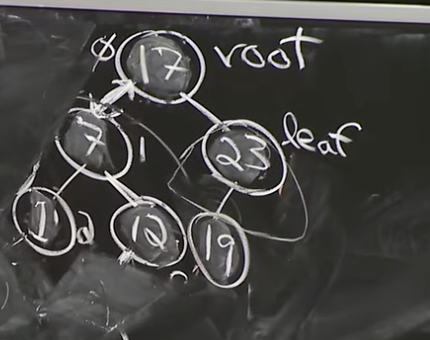 Ø 17 root
7 1 23 leaf
2 12 19